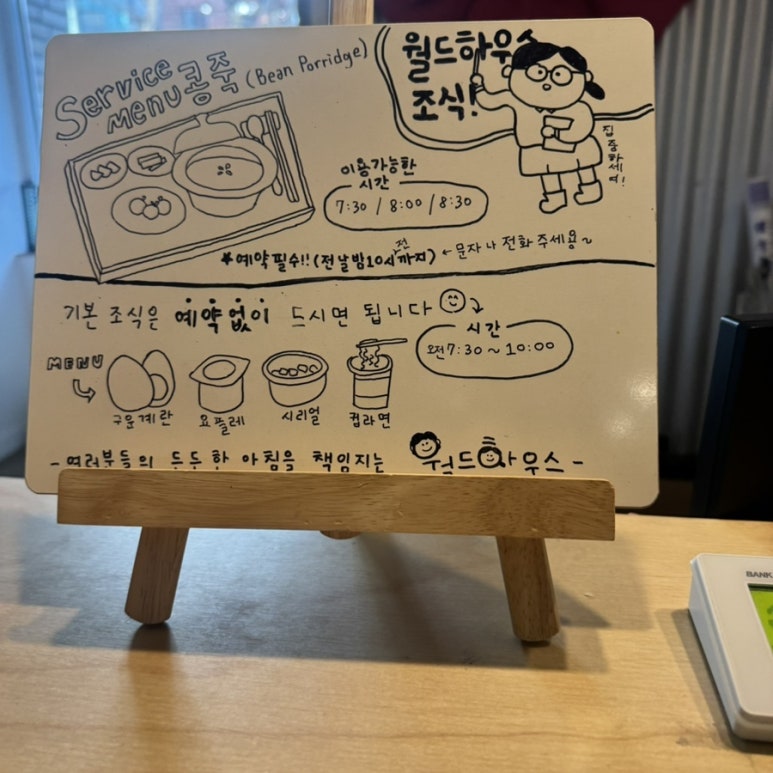 Service Menu 콩죽 (Bean Porridge)
월드하우스
조식!
집중하세여!
이용가능한
시간
7:30 / 8:00 / 8:30
*예약필수!! (전날밤10시전까지) ← 문자나 전화 주세용~
기본 조식은 예약없이 드시면 됩니다
시간
오전7:30 ~ 10:00
MENU
구운계란
요플레
시리얼
컵라면
- 여러분들의 든든한 아침을 책임지는 월드하우스 -
BANK